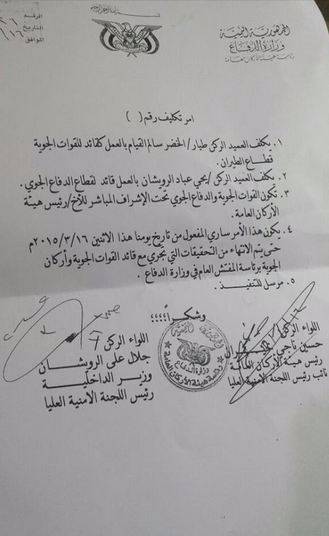 الجمهورية اليمنية
وزارة الدفاع
رئاسة هيئة الأركان العامة
الرقم
التاريخ
الموافق
امر تكليف رقم ( )
١. يكلف العميد الركن طيار/الخضر سالم القيام بالعمل كقائد للقوات الجوية
قطاع الطيران.
٢. يكلف العميد الركن/يحي عباد الرويشان بالعمل قائد لقطاع الدفاع الجوي.
٣. تكون القوات الجوية والدفاع الجوي تحت الإشراف المباشر للأخ/رئيس هيئة
الأركان العامة.
٤. يكون هذا الأمر ساري المفعول من تاريخ يومنا هذا الاثنين ٢٠١٥/٣/١٦م
حتى يتم الانتهاء من التحقيقات التي تجري مع قائد القوات الجوية وأركان
الجوية برئاسة المفتش العام في وزارة الدفاع.
٥. مرسل للتنفيذ.
وشكراً،،،،،
اللواء الركن
حسين ناجي
رئيس هيئة الأركان العامة
نائب رئيس اللجنة الامنية العليا
اللواء الركن
جلال علي الرويشان
وزير الداخلية
رئيس اللجنة الامنية العليا